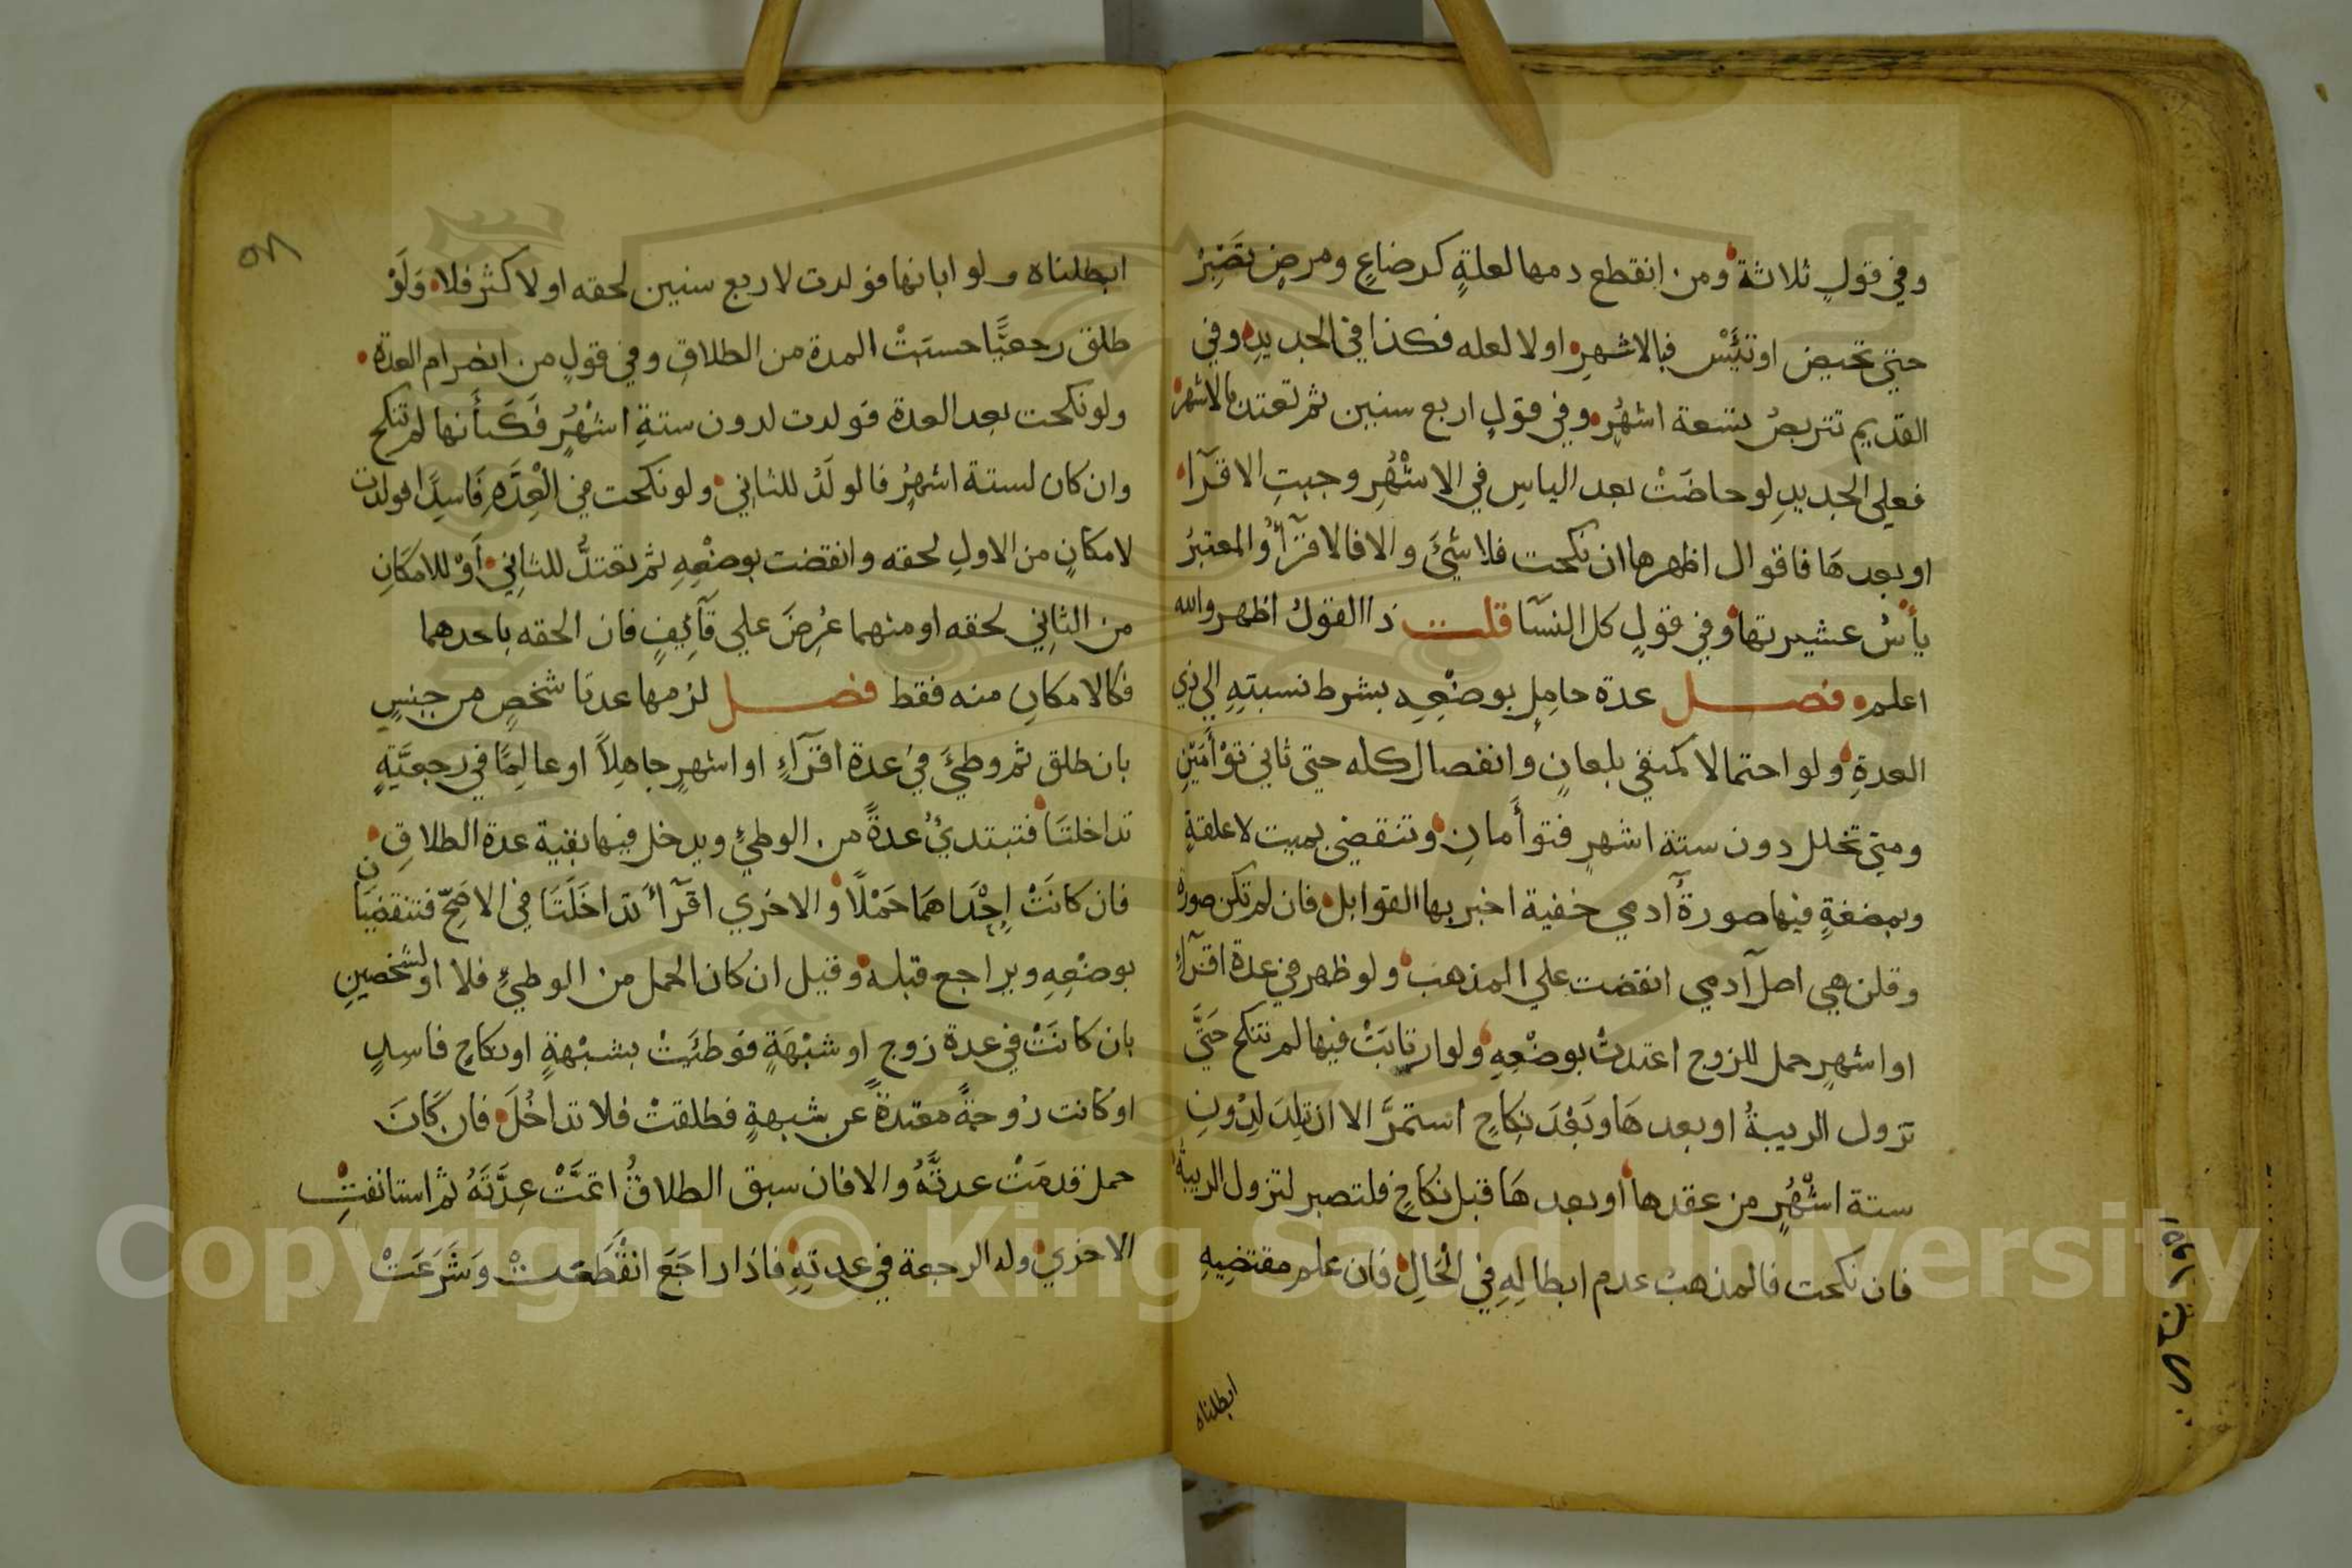 وفي قولٍ ثلاثة ومن انقطع دمها لعلةٍ كرضاعٍ ومرضٍ تصَبْرُ
حتي تحيض او تيئَسْ فبالاشهرِ او لا لعله فكذا في الجديدِ وفي
القديم تتربصُ تسعة اشهُرٍ وفي قولٍ اربع سنين ثم تعتد بالاشهر
فعلي الجديدِ لو حاضَتْ بعد الياسِ في الاشْهُرِ وجبتِ الاقرآء
او بعدهَا فاقوال اظهرها ان نكحت فلا شئَ والا فالاقرآءُ والمعتبرُ
يأسُ عشيرتها وفي قولٍ كل النسَآ قلت ذا القولُ اظهر والله
اعلم فصل عدة حامِلٍ بوضْعِهِ بشرط نسبتِهِ الي ذي
العدةِ ولو احتمالا كمنفي بلعانٍ وانفصال كله حتي ثاني توْأَمَيْنِ
ومتي تخلل دون ستة اشهرٍ فتوأَمانِ وتنقضي بميت لا علقةٍ
وبمضغةٍ فيها صورةُ آدمي خفية اخبر بها القوابل فان لم تكن صورة
وقلن هي اصل آدمي انقضت علي المذهب ولو ظهر في عدة اقرآءٍ
او اشهرٍ حمل للزوج اعتدتْ بوضْعِهِ ولو ارتابَتْ فيها لم تنكح حَتَّي
تزول الريبةُ او بعدهَا وبَعْدَ نِكاحٍ استمرَّ الا ان تلِدَ لِدُونِ
ستة اشْهُرٍ من عقدها او بعدهَا قبل نكاحٍ فلتصبر لتزول الريبة
فان نكحت فالمذهب عدم ابطالِهِ في الْحَالِ فان علم مقتضيِهِ
ابطلناه
٥٨
ابطلناه ولو ابانها فولدت لاربع سنين لحقه او لاكثر فلا وَلَوْ
طلق رجعيًّا حسبَتْ المدة من الطلاقِ وفي قولٍ من انصرام العدة
ولو نكحت بعد العدة فولدت لدون ستةِ اشْهُرٍ فَكَأَنها لم تنكح
وان كان لستة اشهُرٍ فالولَدُ للثاني ولو نكحت في الْعِدَّهِ فَاسِدًا فولدت
لامكانٍ من الاولِ لحقه وانقضت بوضْعِهِ ثم تعتدُّ للثاني أوْ للامكَانِ
من الثاني لحقه او منهما عُرِضَ علي قآئِفٍ فان الحقه باحدهما
فكالامكانِ منه فقط فصل لزمها عدتا شخصٍ من جنسٍ
بان طلق ثم وطئَ في عدة اقرآءٍ او اشهرٍ جاهِلاً او عالِمًا في رجعيَّةٍ
تداخلتَا فتبتدئُ عدةً من الوطئِ ويدخل فيها بقية عدة الطلاقِ
فان كانَتْ إِحْدَاهمَا حَمْلًا والاخري اقرآءً تداخَلَتَا في الاصَحِّ فتنقضيَان
بوضْعِهِ ويراجع قبله وقيل ان كان الحمل من الوطئِ فلا او لشخصين
بان كانَتْ في عدة زوجٍ او شبْهَةٍ فوطئَتْ بشبْهةٍ او نكاحٍ فاسِدٍ
او كانت زوجةً معتدةً عن شبهةٍ فطلقتْ فلا تداخُلَ فان كَانَ
حمل قدمَتْ عدتُهُ والا فان سبق الطلاقُ اتمَّتْ عِدَّتَهُ ثم استانفتِ
الاخري وله الرجعة في عدتِهِ فاذا راجَعَ انقْطَعَتْ وَشَرَعَتْ
Copyright © King Saud University